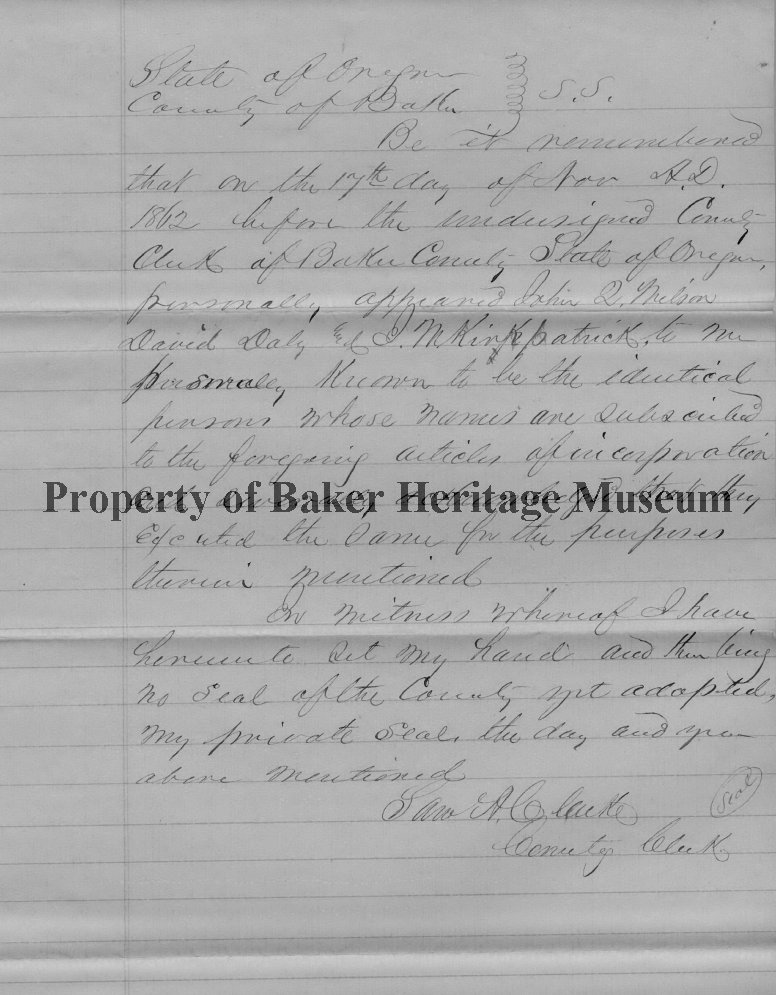 State of Oregon
County of Baker } S.S.
Be it remembered
that on the 17th day of Nov A.D.
1862 before the undersigned County
Clerk of Baker County State of Oregon,
personally appeared John Q. Wilson
David Daly & J. M. Kirkpatrick, to me
personally known to be the identical
persons whose names are subscribed
to the foregoing articles of incorporation
and that they
Property of Baker Heritage Museum
Executed the same for the purposes
therein mentioned
In witness whereof I have
hereunto set my hand and there being
no seal of the County yet adopted,
my private seal, the day and year
above mentioned
Sam A. Clarke (Seal)
County Clerk